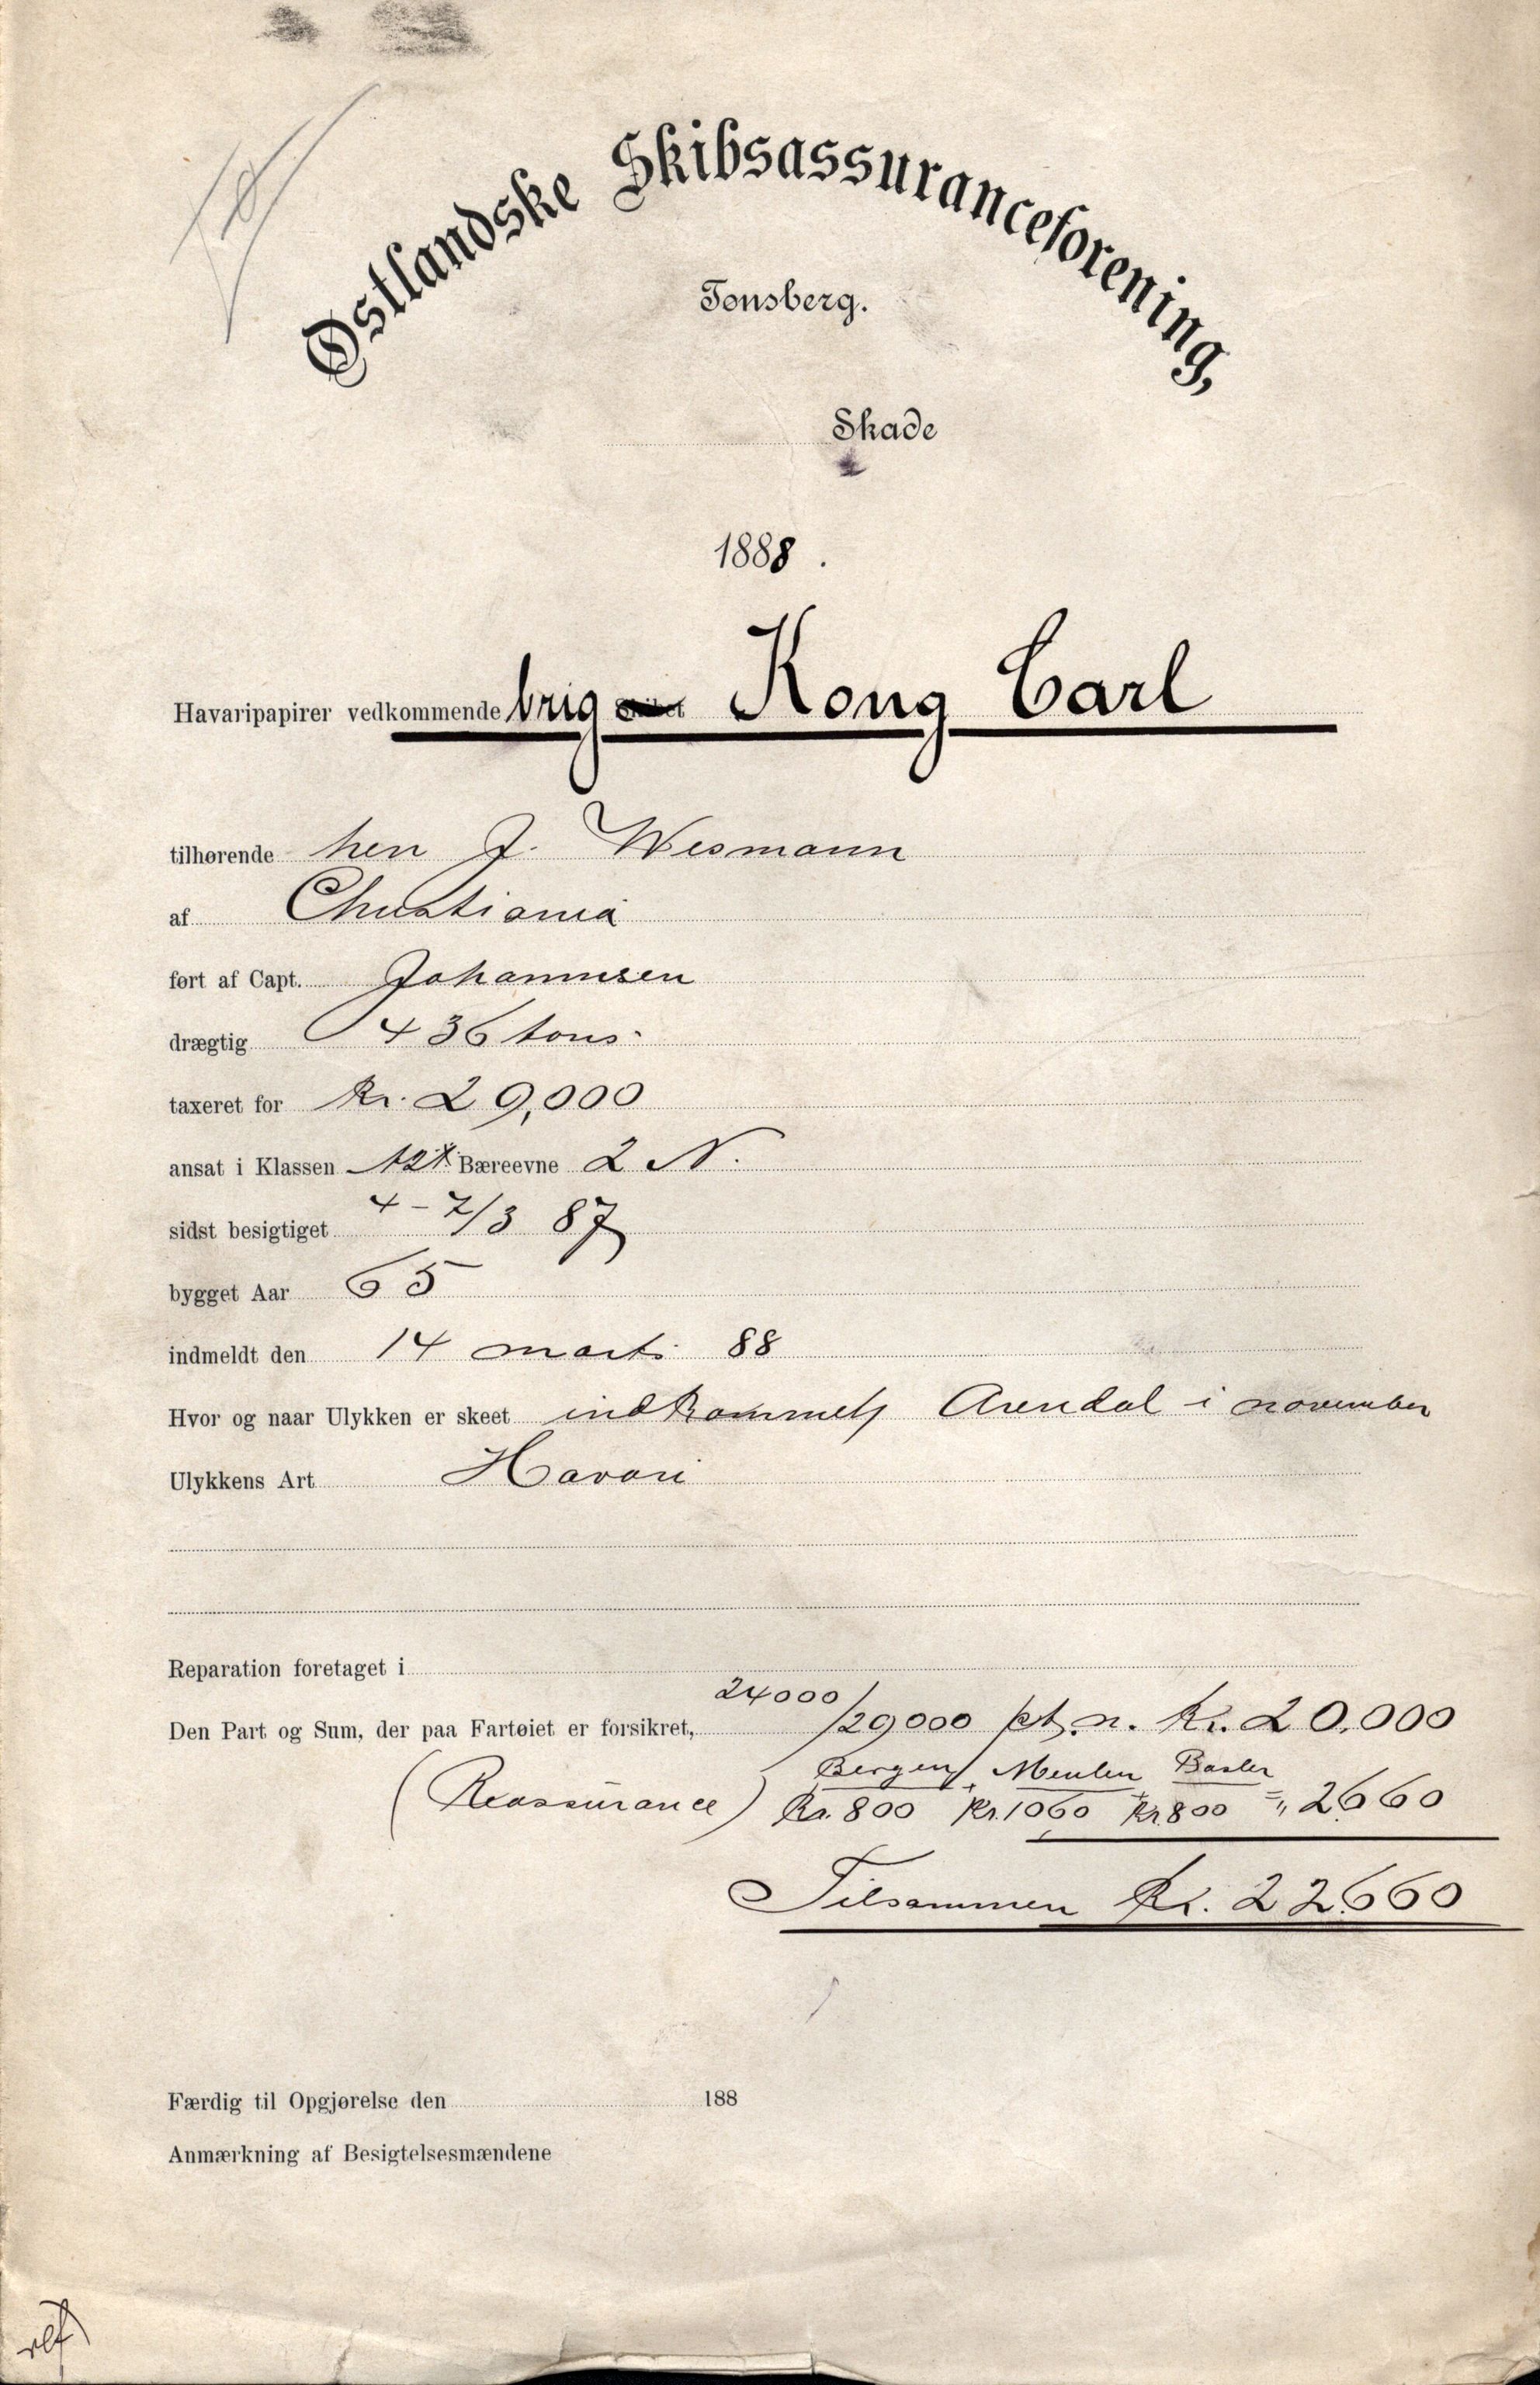 Østlandske Skibsassuranceforening,
Tønsberg.
Skade
1888.
Havaripapirer vedkommende brig Skibet Kong Carl
tilhørende herr J. Wesmann
af Christiania
ført af Capt. Johannesen
drægtig 436 tons
taxeret for Kr. 29,000
ansat i Klassen A2 Bæreevne 2 N.
sidst besigtiget 4-7/3 87
bygget Aar 65
indmeldt den 14 marts 88
Hvor og naar Ulykken er skeet indkommet Arendal i november
Ulykkens Art Havari
Reparation foretaget i
Den Part og Sum, der paa Fartøiet er forsikret, 24000/29000 pt. n. Kr. 20.000
Bergen Meulen Basler
(Reassurance) Kr. 800 + Kr. 1060 + Kr. 800 = „ 2660
Tilsammen Kr. 22660
Færdig til Opgjørelse den 188
Anmærkning af Besigtelsesmændene